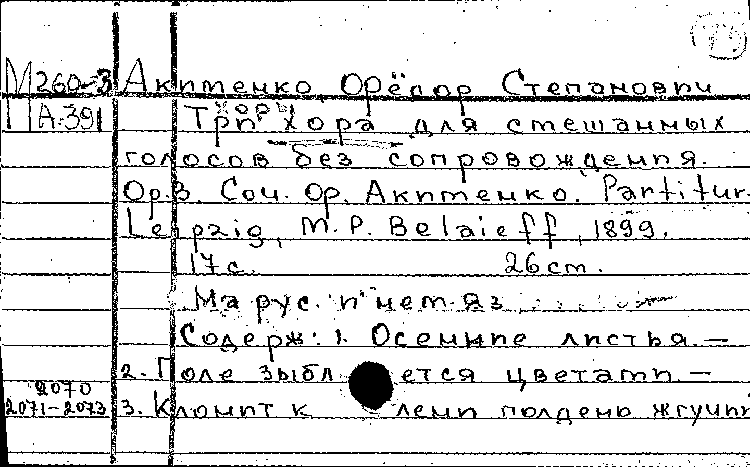 79
М260-3 Акименко, Фёдор Степанович
МА.391 Три хора для смешанных
голосов без сопровождения.
Op.3. Соч. Ф. Акименко. Partitur.
Leipzig, M.P. Belaieff, 1899.
17 с. 26 cm.
На рус. и нем. яз
Содерж: 1. Осенние листья. —
2. Поле зыблется цветами. —
2070
2071-2073 3. Клонит к лени полдень жгучий